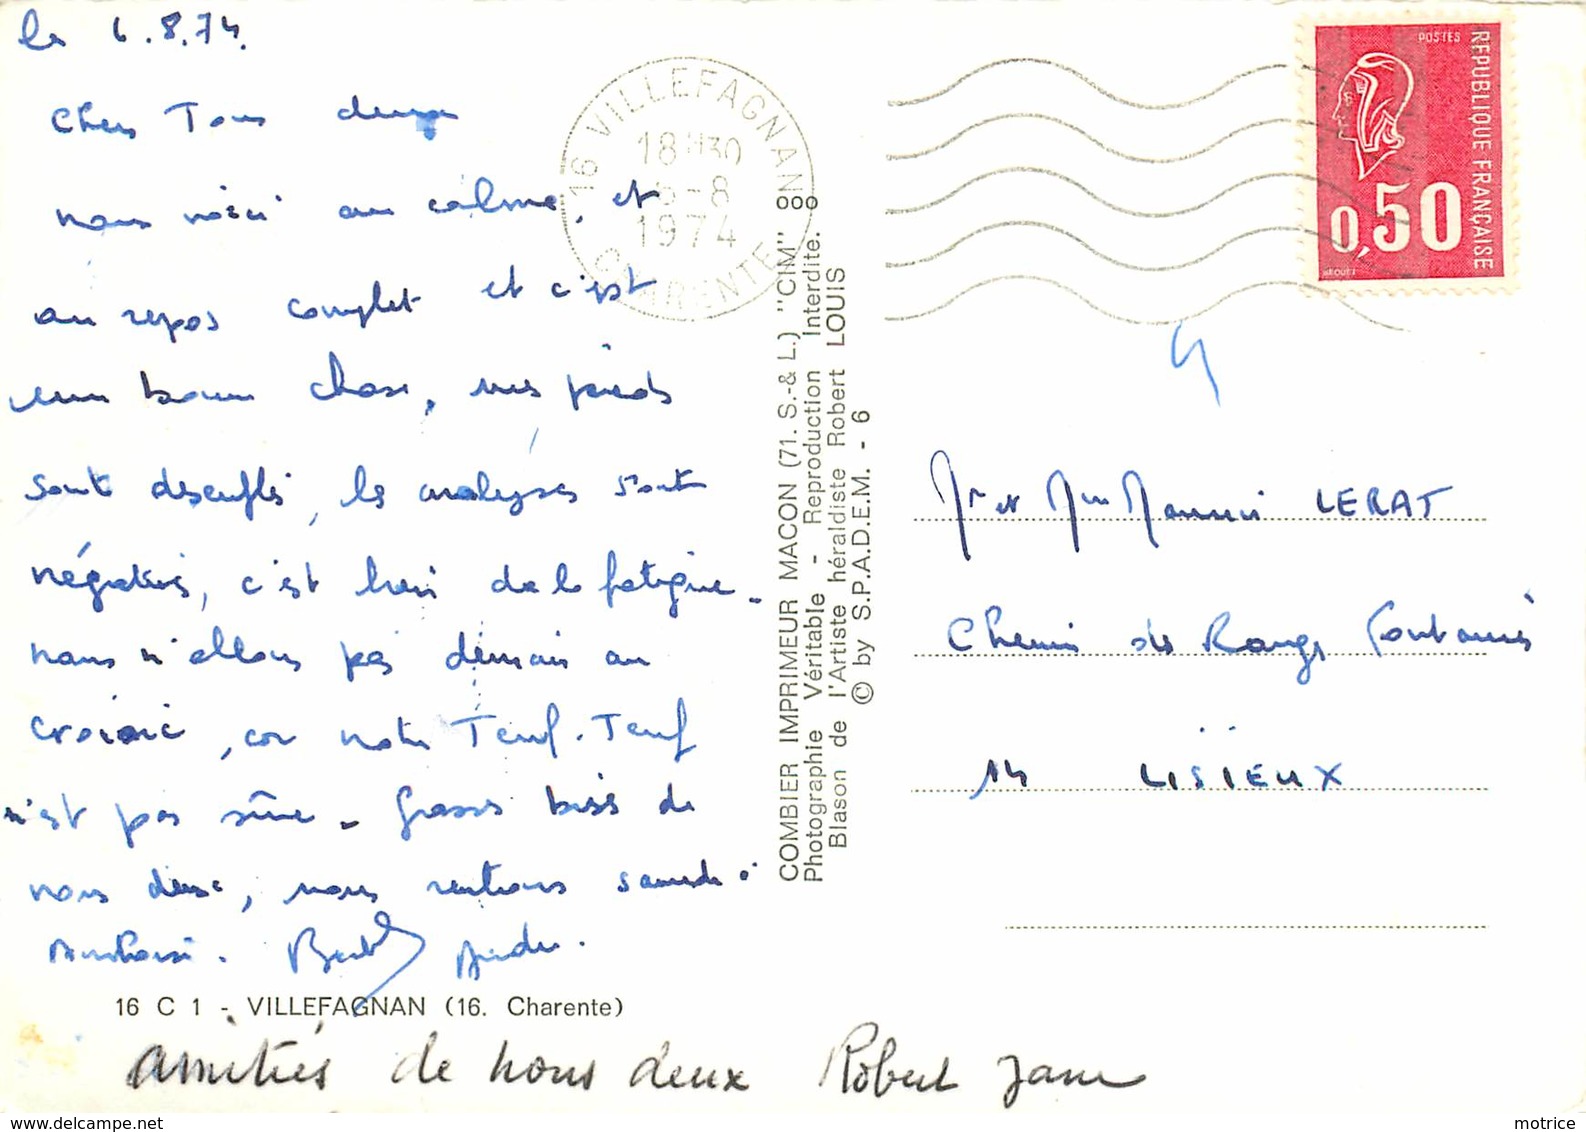 le 6.8.74.
Chers Tous deux
nous voici au calme, et
au repos complet et c'est
une bonne chose, mes pieds
sont désenflés, les analyses sont
négatives, c'est bien de la fatigue -
nous n'allons pas demain au
croisic, car notre Teuf-Teuf
n'est pas sûre - Grosses bises de
nous deux, nous rentrons samedi
16 C 1 - VILLEFAGNAN (16. Charente)
amitiés de nous deux Robert
16 VILLEFAGNAN
18H30
6-8
1974
CHARENTE
COMBIER IMPRIMEUR MACON (71. S.-& L.) "CIM"
Photographie Véritable - Reproduction Interdite.
Blason de l'Artiste héraldiste Robert LOUIS
© by S.P.A.D.E.M. - 6
POSTES
REPUBLIQUE FRANÇAISE
0,50
Mr et Mme Maurice LERAT
Chemin de Rouges Fontaines
14 LISIEUX
www.delcampe.net
motrice